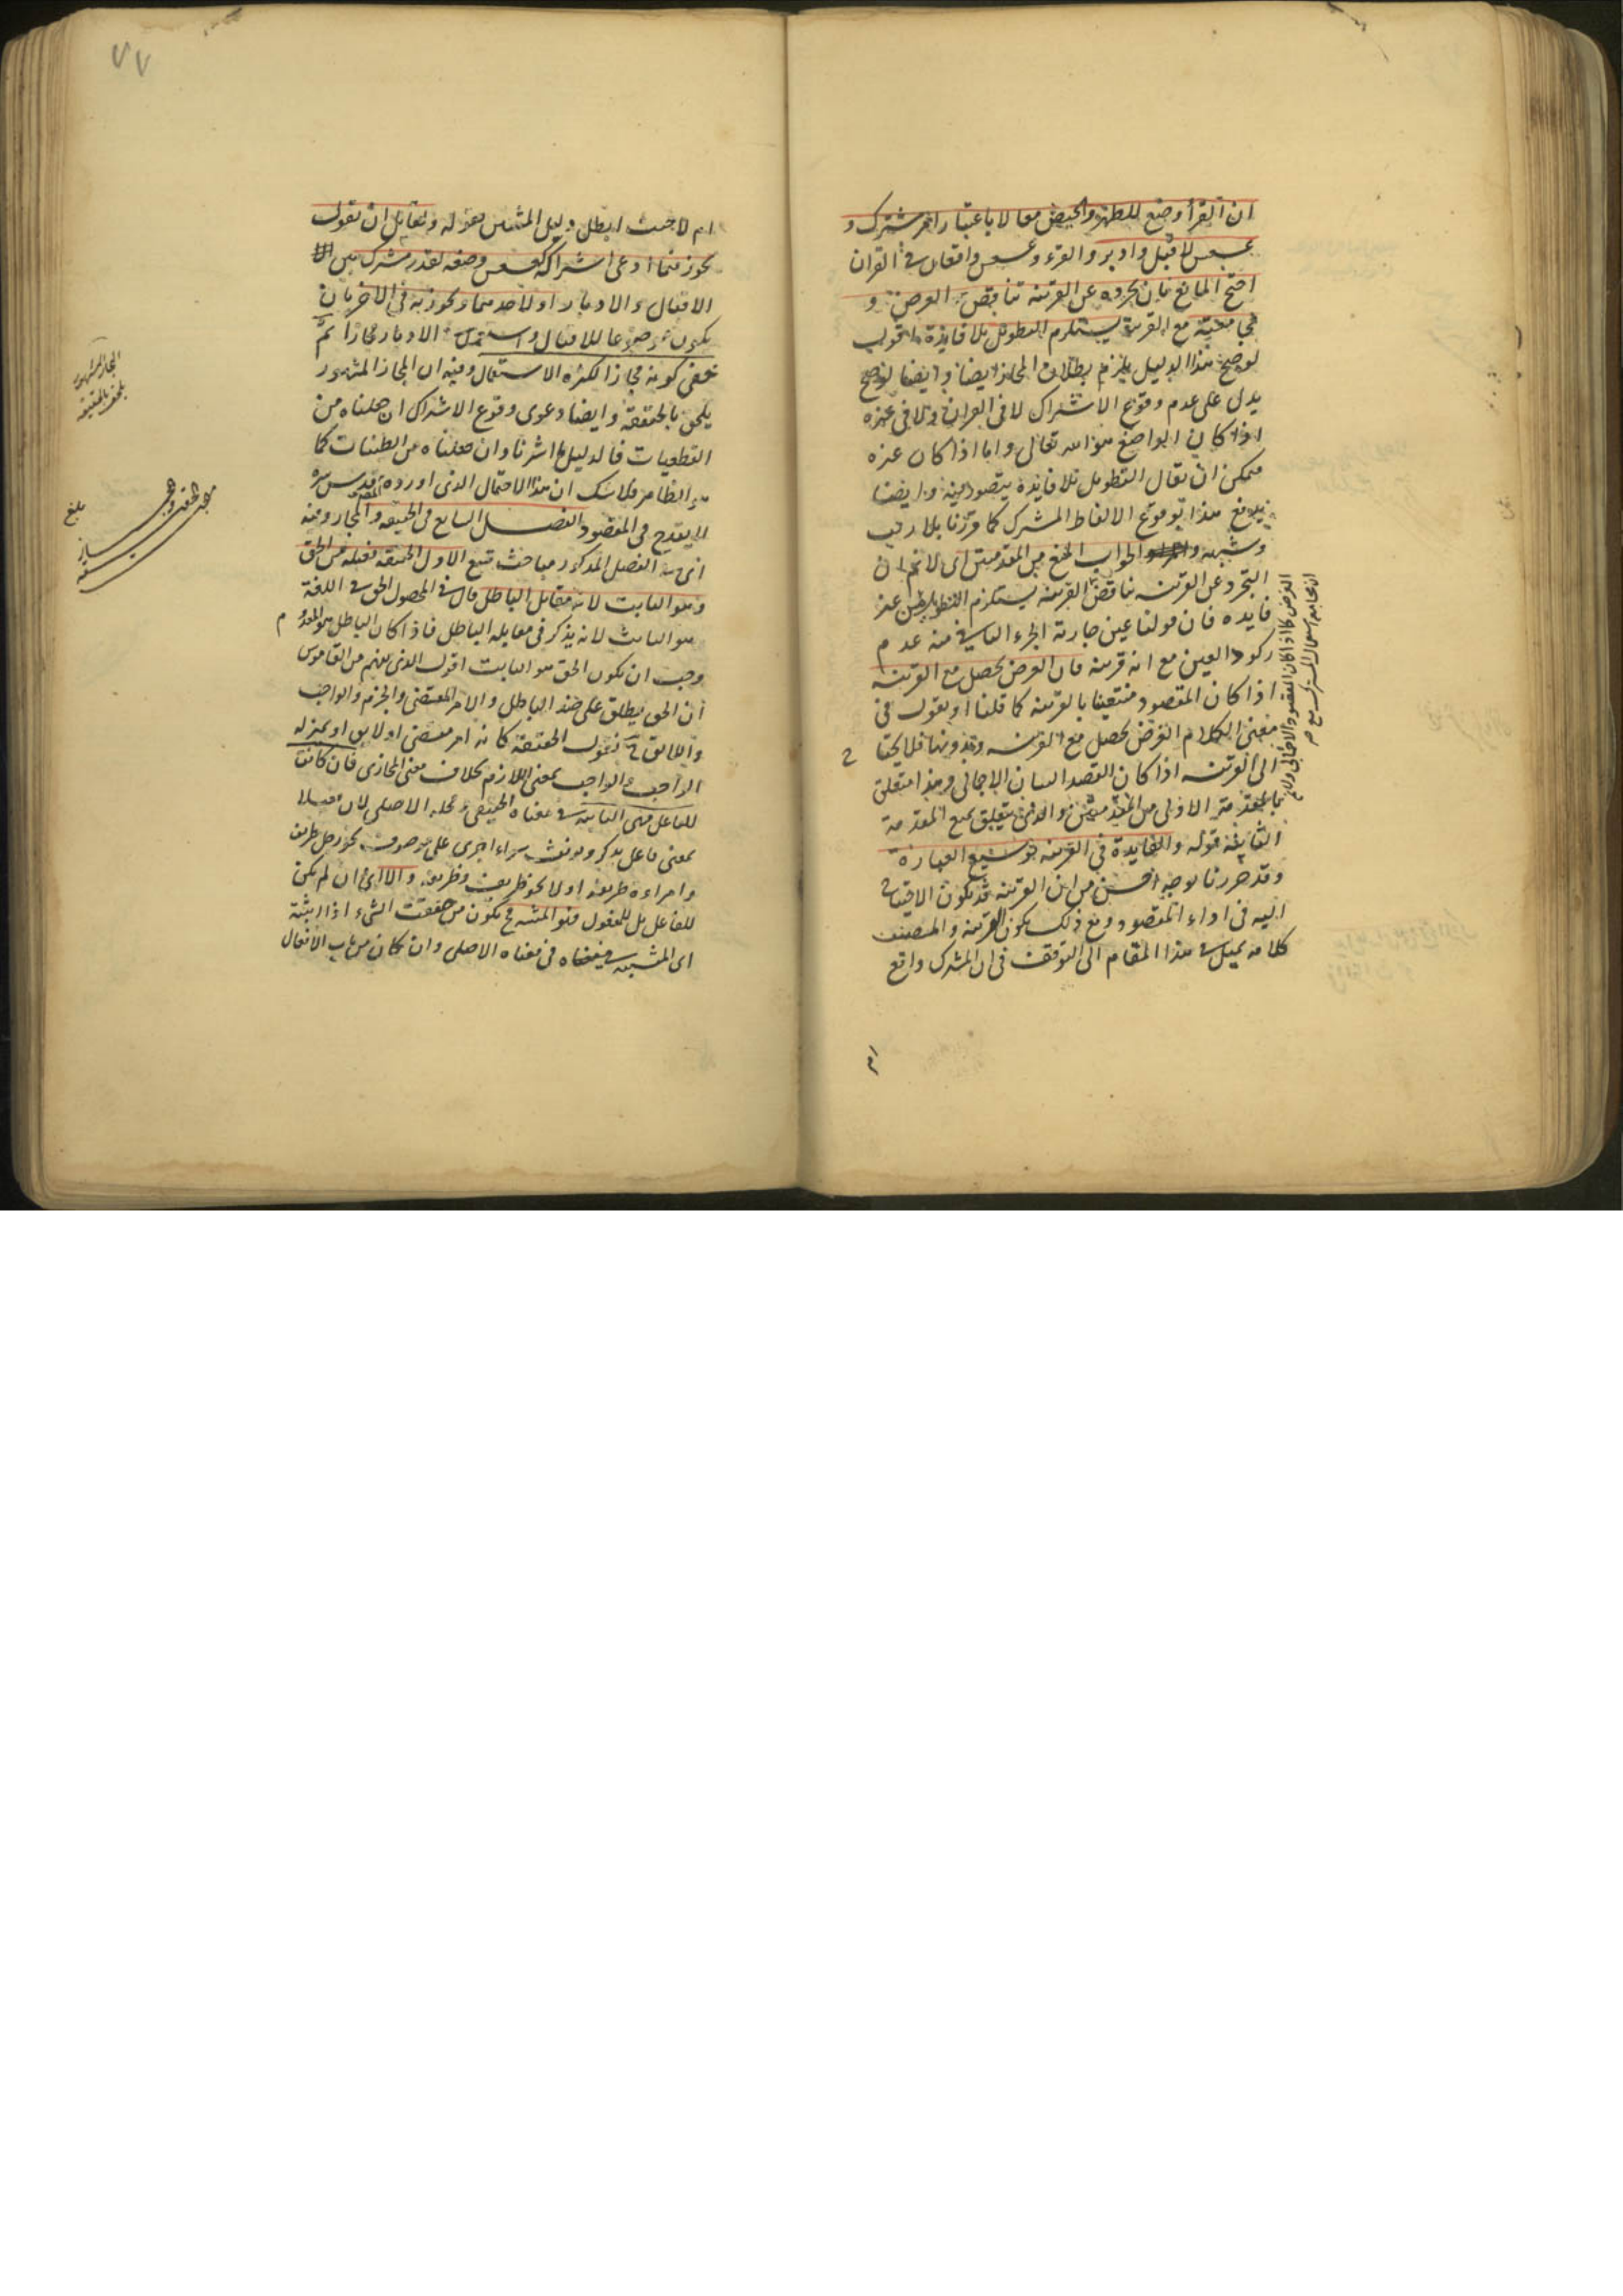 ان القرأ وضع للطهر والحيض معا لا باعتبار امر مشترك و
عسعس لاقبل وادبر والقرء وعسعس واقعان في القران
احتج المانع بان تجرده عن القرينة تناقض الغرض و
مع القرينة يستلزم التطويل بلا فايدة اقول
لو صح هذا الدليل يلزم بطلان المجاز ايضا وايضا لو صح
يدل على عدم وقوع الاشتراك لا في القران ولا في غيره
اذا كان الواضع هو الله تعالى واما اذا كان غيره
فيمكن ان يقال التطويل بلا فايدة يتصور منه وايضا
هذا بوقوع الالفاظ المشترك كما قررنا بلا ريب
وشبهة والجواب المنع من المقدمتين اى لانم ان
التجرد عن القرينة يناقض القرينة يستلزم التطويل من غير
فايده فان قولنا عين جارية الجزء الثاني منه عدم
ركود العين مع انه قرينة فان الغرض يحصل مع القرينة
اذا كان المقصود منتفيا بالقرينة كما قلنا او نقول في
معنى الكلام الغرض يحصل مع القرينة وبدونها فلا يحتا
ج
الى القرينة اذا كان القصد البيان الاجمالى وهذا متعلق
بالمقدمة الاولى من المقدمتين والذى يتعلق بمنع المقدمة
الثانية قوله والفايدة في القرينة توسيع العبارة
وقد حررنا بوجه احسن من ان القرينة قد يكون الاحتياج
اليه في اداء المقصود ومع ذلك يكون القرينة والمصنف
كلامه يميل في هذا المقام الى التوقف في ان المشترك واقع
الغرض كما اذا كان المقصود الاجمالى ولانم
ان مجامعة استعمال المشترك مع
ام
٧٧
ام لا حيث ابطل دليل المثبتين بقوله ولقائل ان يقول
يجوز فيما ادعى اشتراكه كعسعس وضعه لقدر مشترك بين
الاقبال والادبار او لاحدهما ويجوز به في الاخر بان
يكون موضوعا للاقبال واستعمل في الادبار مجازا ثم
خفى كونه مجازا لكثرة الاستعمال وفيه ان المجاز المشهور
يلحق بالحقيقة وايضا دعوى وقوع الاشتراك ان جعلناه من
القطعيات فالدليل ما اشرنا وان جعلناه من الظنيات كما
هو الظاهر فلا شك ان هذا الاحتمال الذى اورده المصنف قدس سره
لا يقدح في المقصود الفصل السابع في الحقيقة والمجاز وفيه
اى في الفصل المذكور مباحث تسع الاول الحقيقة فعيلة من الحق
وهو الثابت لانه مقابل الباطل قال في المحصول الحق في اللغة
هو الثابت لانه يذكر في مقابلة الباطل فاذا كان الباطل هو المعدوم
وجب ان يكون الحق هو الثابت اقول الذى يفهم من القاموس
ان الحق يطلق على ضد الباطل والامر المقضى والجزم والواجب
واللائق فنقول الحقيقة كانه امر مقضى او لايق او بمنزلة
الواجب والواجب بمعنى اللازم بخلاف معنى المجازى فان كانت
للفاعل فهى الثابتة في معناه الحقيقى ومحله الاصلى لان فعيلا
بمعنى فاعل يذكر ويونث سواء اجرى على موصوف نحو رجل ظريف
وامراءة ظريفة او لا نحو ظريف وظريفة والا اى ان لم يكن
للفاعل بل للمفعول فهو المثبته يكون من حققت الشىء اذا اثبته
اى المثبتة في معناه الاصلى وان كان من باب الافعال
المجاز المشهور
يلحق بالحقيقة
بلغ
مبحث الحقيقة والمجاز